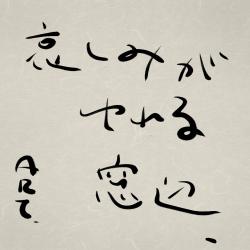 哀しみが
やれる
窓辺.
ART.